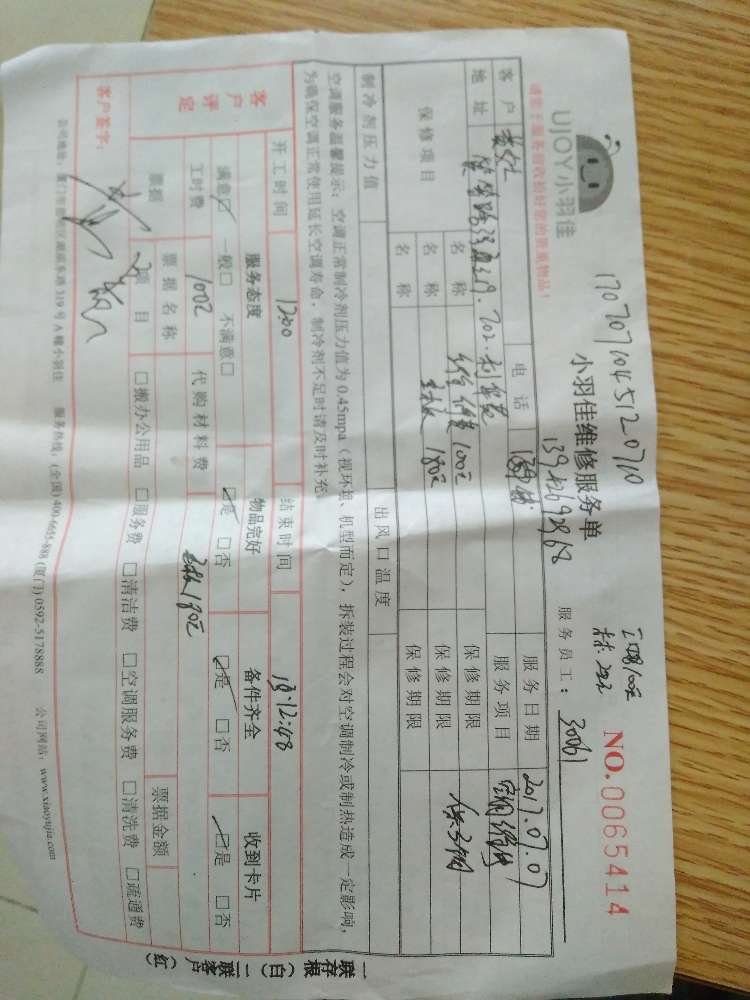 170707104512 0710
UJOY小羽佳
小羽佳维修服务单
NO.0065414
请您于服务前收拾好您的贵重物品!
服务员工: 30061
客户 电话 服务日期 2017.07.07
地址 服务项目 空调维修
保修项目 名称 维修费100元 保修期限
名称 主板180元 保修期限
名称 保修期限
制冷剂压力值 出风口温度
空调服务温馨提示: 空调正常制冷剂压力值为0.45mpa (视环境、机型而定), 拆装过程会对空调制冷或制热造成一定影响,
为确保空调正常使用延长空调寿命, 制冷剂不足时请及时补充。
开工时间 1200 结束时间 12:48
客户评定 服务态度 物品完好 备件齐全 收到卡片
满意☑ 一般□ 不满意□ ☑是 □否 ☑是 □否 ☑是 □否
工时费 100元 代购材料费 主板180元
票据 票据名称 票据金额
项目 □搬办公用品 □服务费 □清洁费 □空调服务费 □清洗费 □疏通费
客户签字:
319号A幢小羽佳 服务热线: (全国)400-6655-888 (厦门)0592-5178888 公司网站: www.xiaoyujia.com
一联存根(白)二联客户(红)